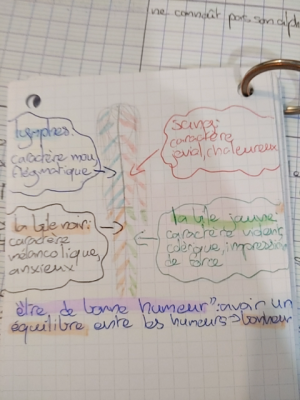 ne connaît pas son alph
lymphes:
caractère mou,
flegmatique
sang:
caractère
jovial, chaleureux
la bile noir:
caractère
mélancolique,
anxieux
la bile jaune
caractère violent,
colérique, impression
de force
être de bonne humeur": avoir un
équilibre entre les humeurs => bonheur